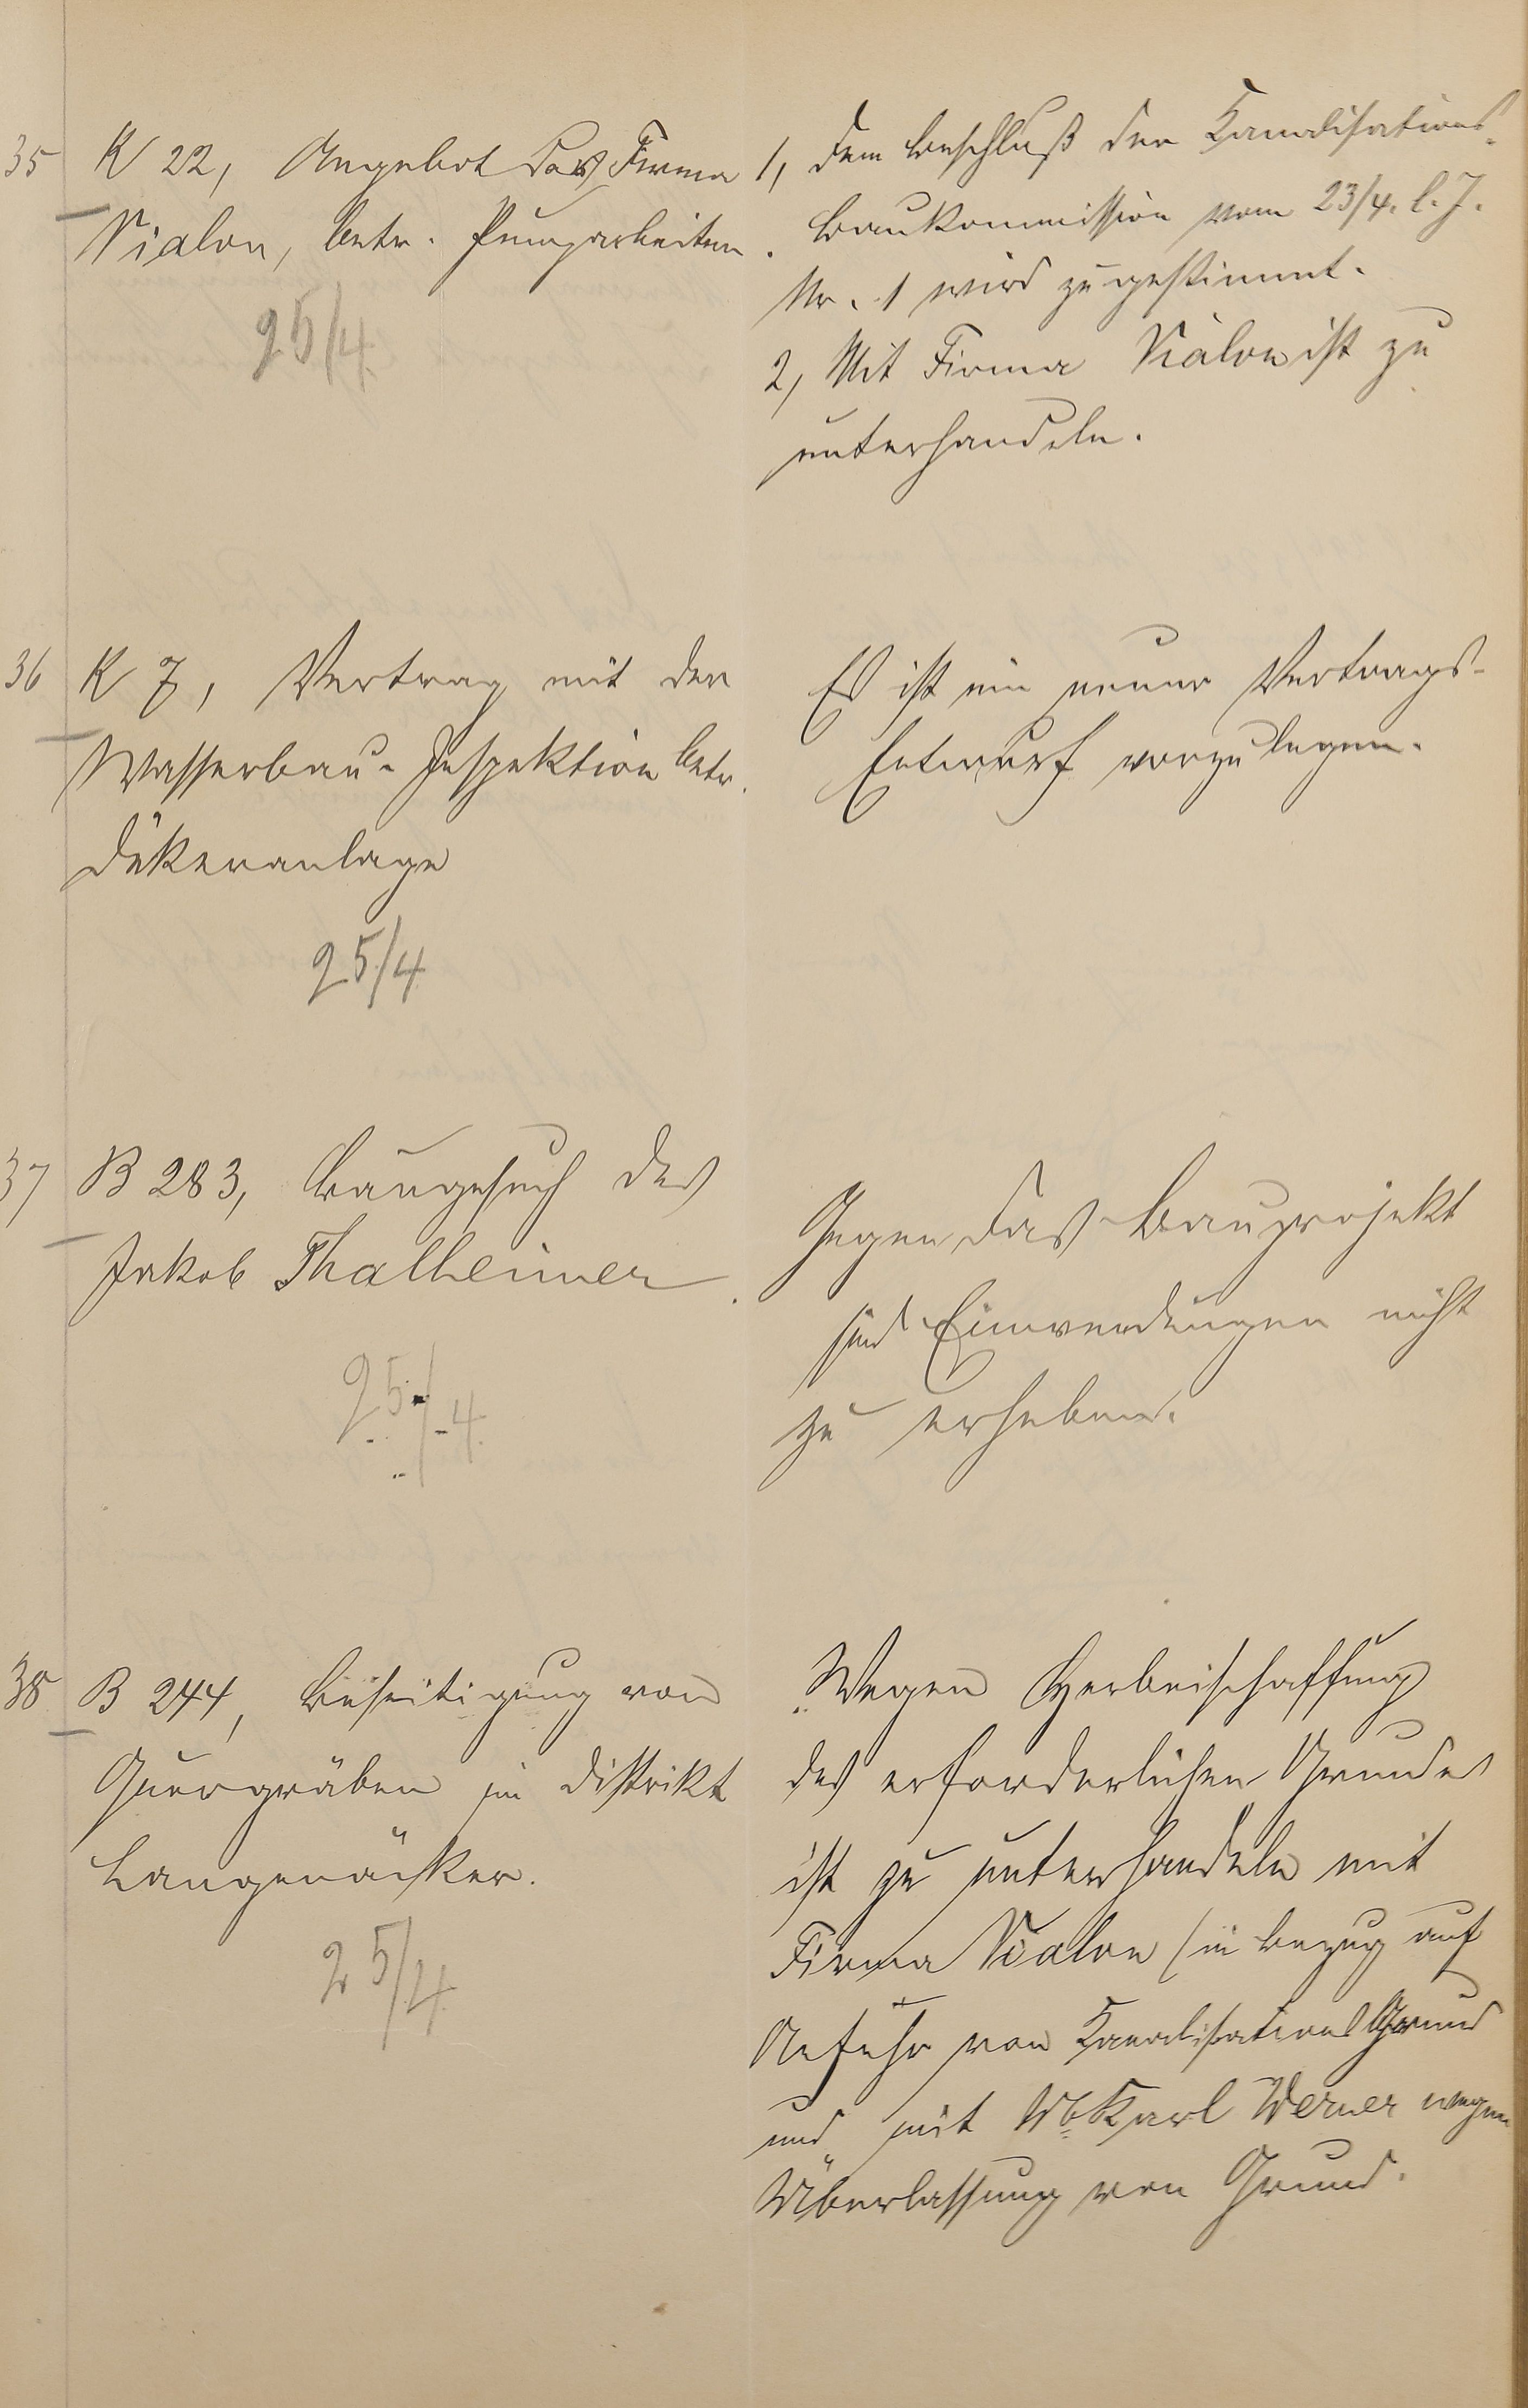 35
K 22, Angebot der Firma
Vialon, betr. Pumparbeiten.
25/4.
1, Dem Beschluß der Kanalisations-
Baukommission vom 23/4. l. J.
Nr. 1 wird zugestimmt.
2, Mit Firma Vialon ist zu
unterhandeln.
36
K 7, Vertrag mit der
Wasserbau-Inspektion betr.
Dükeranlage
25/4.
Es ist ein neuer Vertrags-
Entwurf vorzulegen.
37
B 283, Baugesuch des
Jakob Thalheimer.
25/4.
Gegen das Bauprojekt
sind Einwendungen nicht
zu erheben.
38
B 244, Beseitigung von
Quergräben im Distrikt
Langenäcker.
25/4.
Wegen Herbeischaffung
des erforderlichen Grundes
ist zu unterhandeln mit
Firma Vialon (in Bezug auf
Anfuhr von Kanalisationsgrund
und mit Karl Werner wegen
Überlassung von Grund.